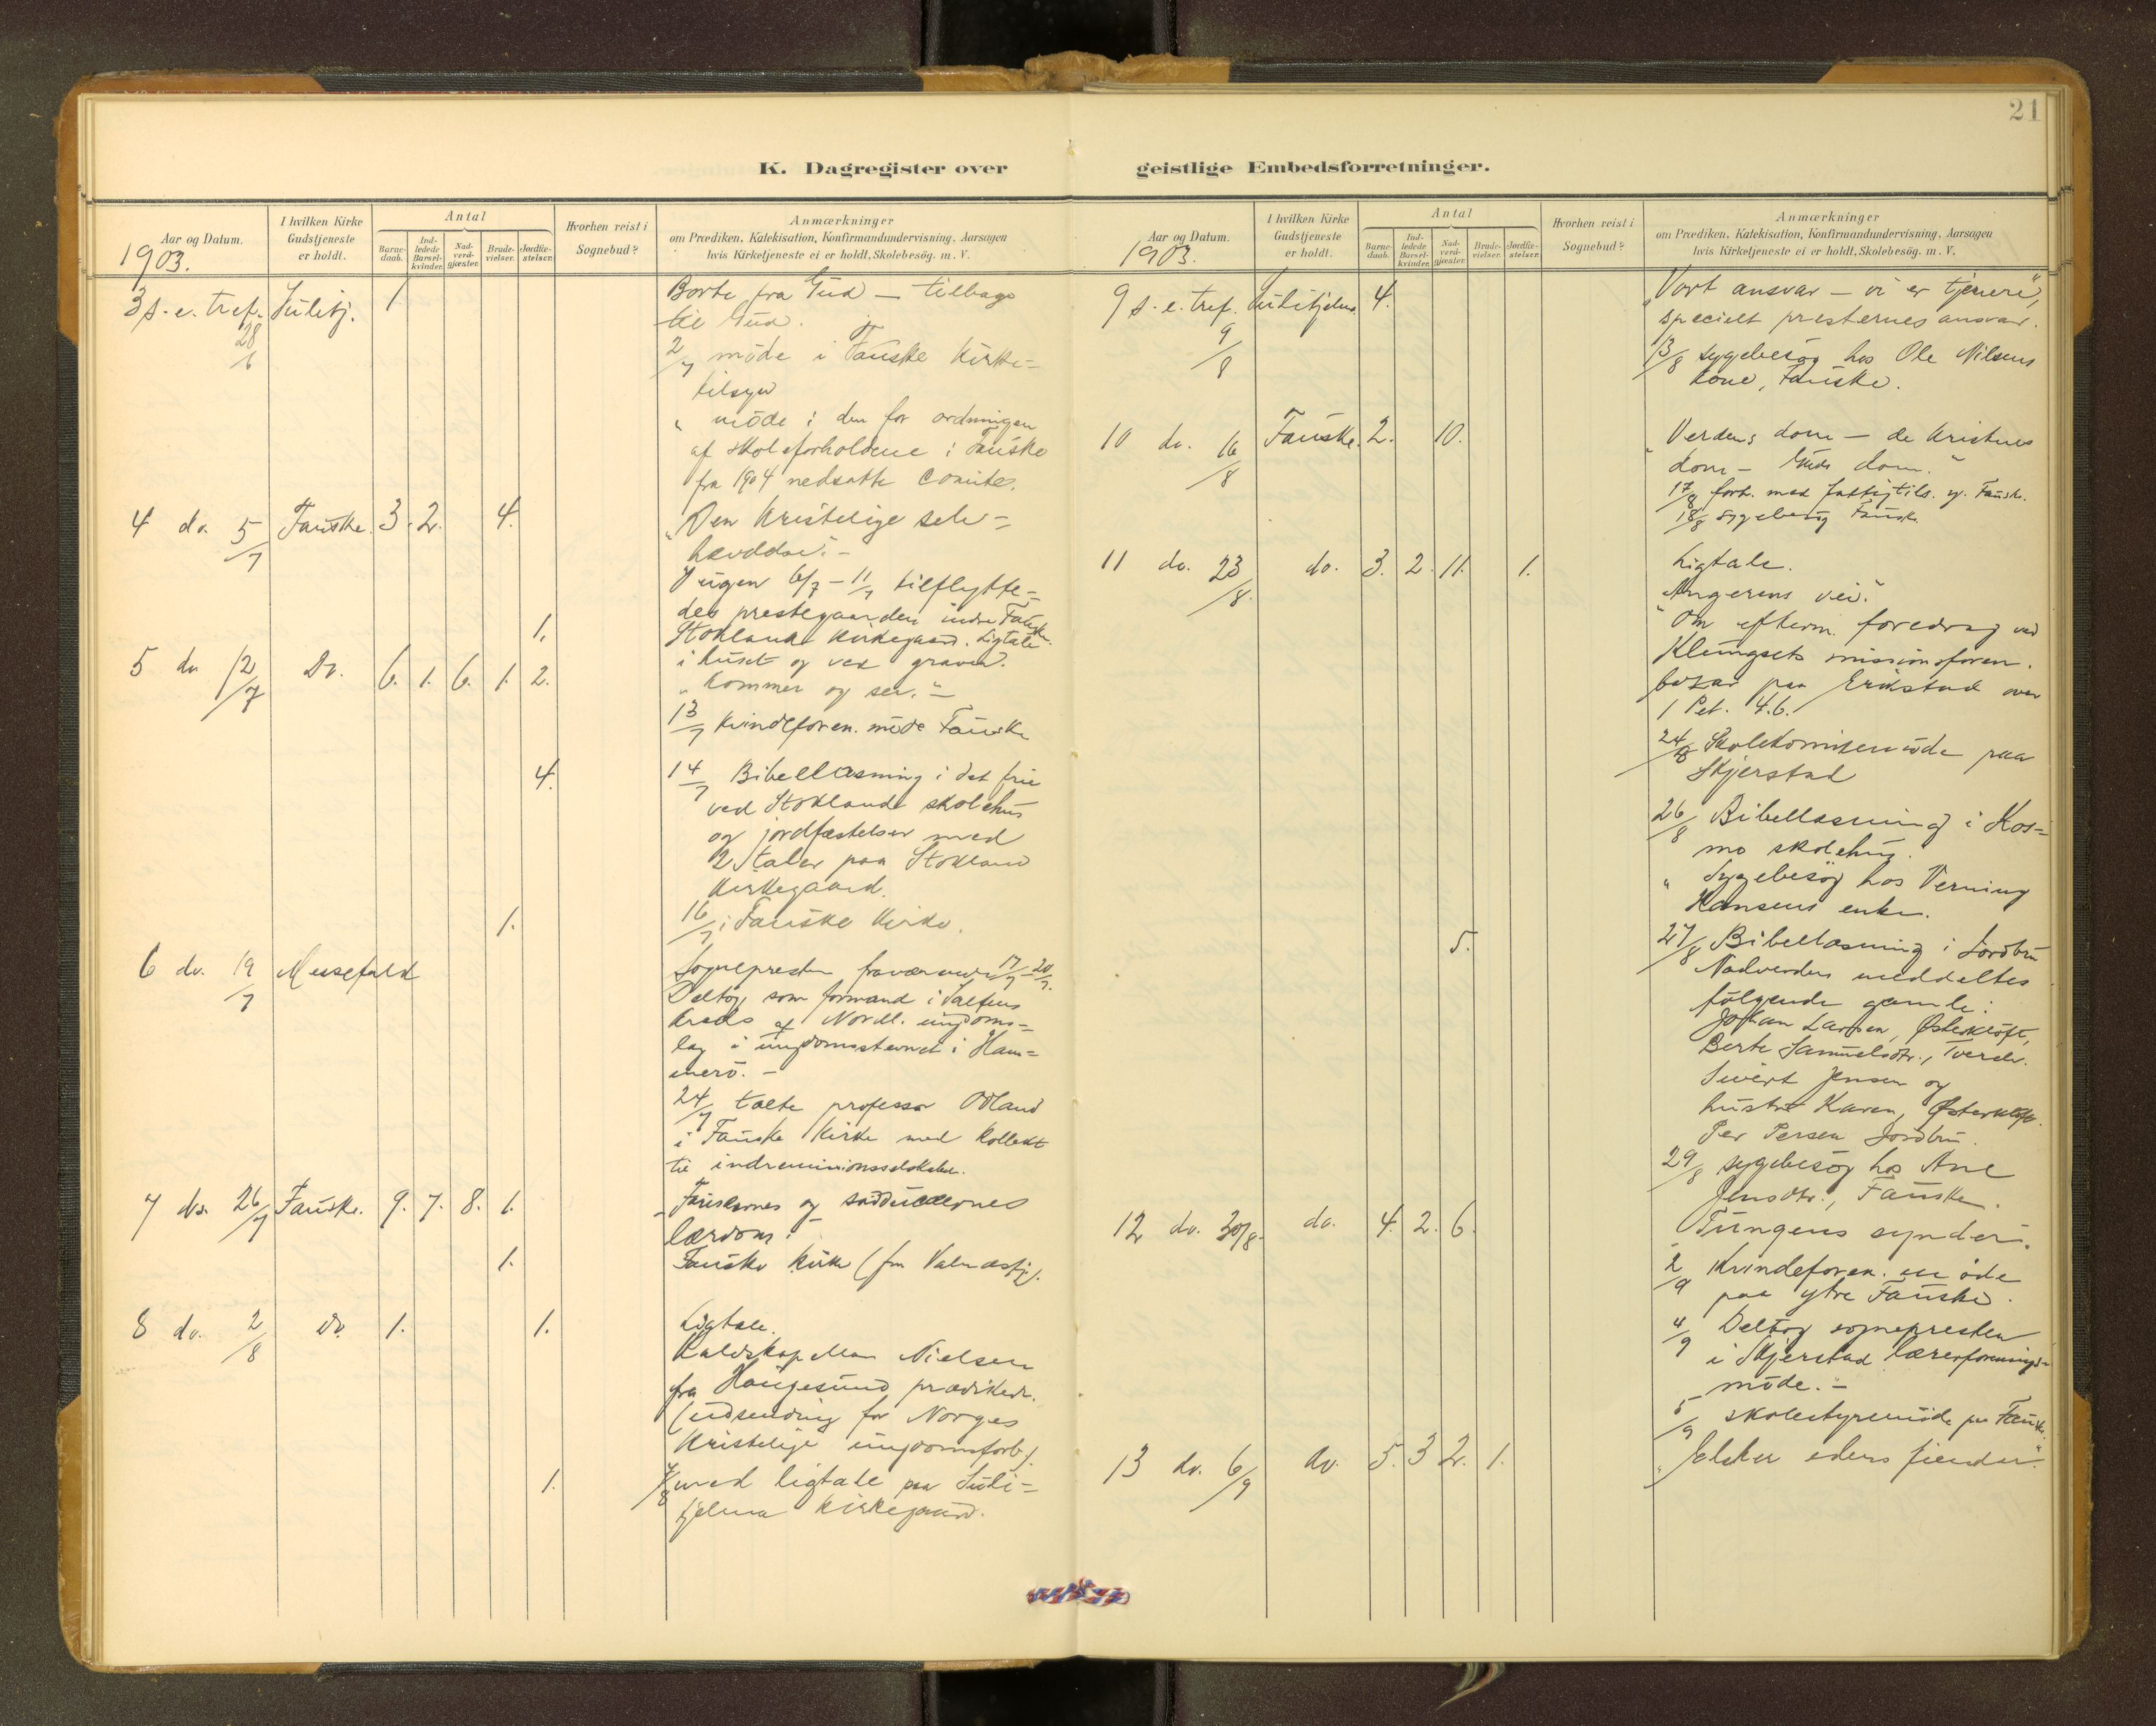 21
K. Dagregister over geistlige Embedsforretninger.
Aar og Datum. 1903.
I hvilken Kirke Gudstjeneste er holdt.
Antal
Barne-daab.
Ind-ledede Barsel-kvinder.
Nad-verd-gjæster.
Brude-vielser.
Jordfæ-stelser.
Hvorhen reist i Sognebud?
Anmærkninger
om Prædiken, Katekisation, Konfirmandundervisning, Aarsagen
hvis Kirketjeneste ei er holdt, Skolebesøg. m. V.
3 s. e. tref. 28/6 Sulitj. 1
Borte fra Gud — tilbage
til Gud.
2/7 møde i Fauske Kirke-
tilsyn
" møde i den for ordningen
af skoleforholdene i Fauske
fra 1904 nedsatte Comite.
4 do. 5/7 Fauske. 3. 2. 4.
"Den Kristelige selv-
hævdelse." -
I ugen 6/7 - 11/7 tilflytte-
des prestegaarden indre Fauske.
1. Stoklands Kirkegaard. Ligtale
i huset og ved graven.
5 do 12/7 Do. 6. 1. 6. 1. 2.
"Kommer og ser." -
13/7 Kvindeforen. møde Fauske
4. 14/7 Bibellæsning i det frie
ved Stoklands skolehus
og jordfæstelser med
2 taler paa Stokland
Kirkegaard.
1. 16/7 i Fauske Kirke.
6 do. 19/7 Messefald
Sognepresten fraværende 17/7 - 20/7.
Deltog som formand i Saltens
kreds af Nordl. ungdoms-
lag i ungdomsstevnet i Ham-
merö. -
24/7 talte professor Odland
i Fauske Kirke med Kollekt
til indremissionsselskabet.
7 do. 26/7 Fauske. 9. 7. 8. 1.
"Fariseernes og sadducæernes
lærdom." -
1. Fauske Kirke (fra Valnesfj).
8 do. 2/8 do. 1. 1.
Ligtale.
Kaldskapellan Nielsen
fra Haugesund prædikede.
(udsending for Norges
Kristelige ungdomsforb).
1. 7/8 med ligtale paa Suli-
tjelma Kirkegaard.
Aar og Datum. 1903.
I hvilken Kirke Gudstjeneste er holdt.
Antal
Barne-daab.
Ind-ledede Barsel-kvinder.
Nad-verd-gjæster.
Brude-vielser.
Jordfæ-stelser.
Hvorhen reist i Sognebud?
Anmærkninger
om Prædiken, Katekisation, Konfirmandundervisning, Aarsagen
hvis Kirketjeneste ei er holdt, Skolebesøg. m. V.
9 s. e. tref. 9/8 Sulitjelma. 4.
"Vort ansvar — vi er tjenere",
specielt presternes ansvar.
13/8 sygebesøg hos Ole Nilsens
kone, Fauske.
10 do. 16/8 Fauske. 2. 10.
"Verdens dom — de Kristnes
dom - Guds dom."
17/8 forh. med fattigtils. y. Fausk.
18/8 sygebesøg Fausk.
11 do. 23/8. do. 3. 2. 11. 1.
Ligtale.
"Angerens vei."
Om efterm. foredrag ved
Klungsets missionsforen.
bazar paa Erikstad over
1 Pet. 4.6.
24/8 Skolekomitemøde paa
Skjerstad
26/8 Bibellæsning i Kos-
mo skolehus.
" Sygebesøg hos Verning
Hansens enke.
5. 27/8 Bibellæsning i Jordbru
Nadverden meddeltes
følgende gamle:
Johan Larsen, Østerkløft,
Berte Samuelsdtr., Tverelv.
Sivert Jensen og
hustru Karen, Østerkløft.
Per Persen Jordbru.
29/8 sygebesøg hos Ane
Jensdtr., Fauske.
12 do. 30/8. do. 4. 2. 6.
"Tungens synder."
2/9 Kvindeforen. møde
paa ytre Fauske.
4/9 Deltog sognepresten
i Skjerstad lærerforenings-
møde. -
5/9 skolestyremøde paa Fauske.
13 do. 6/9 do. 5. 3 2. 1.
"Elsker eders fiender."